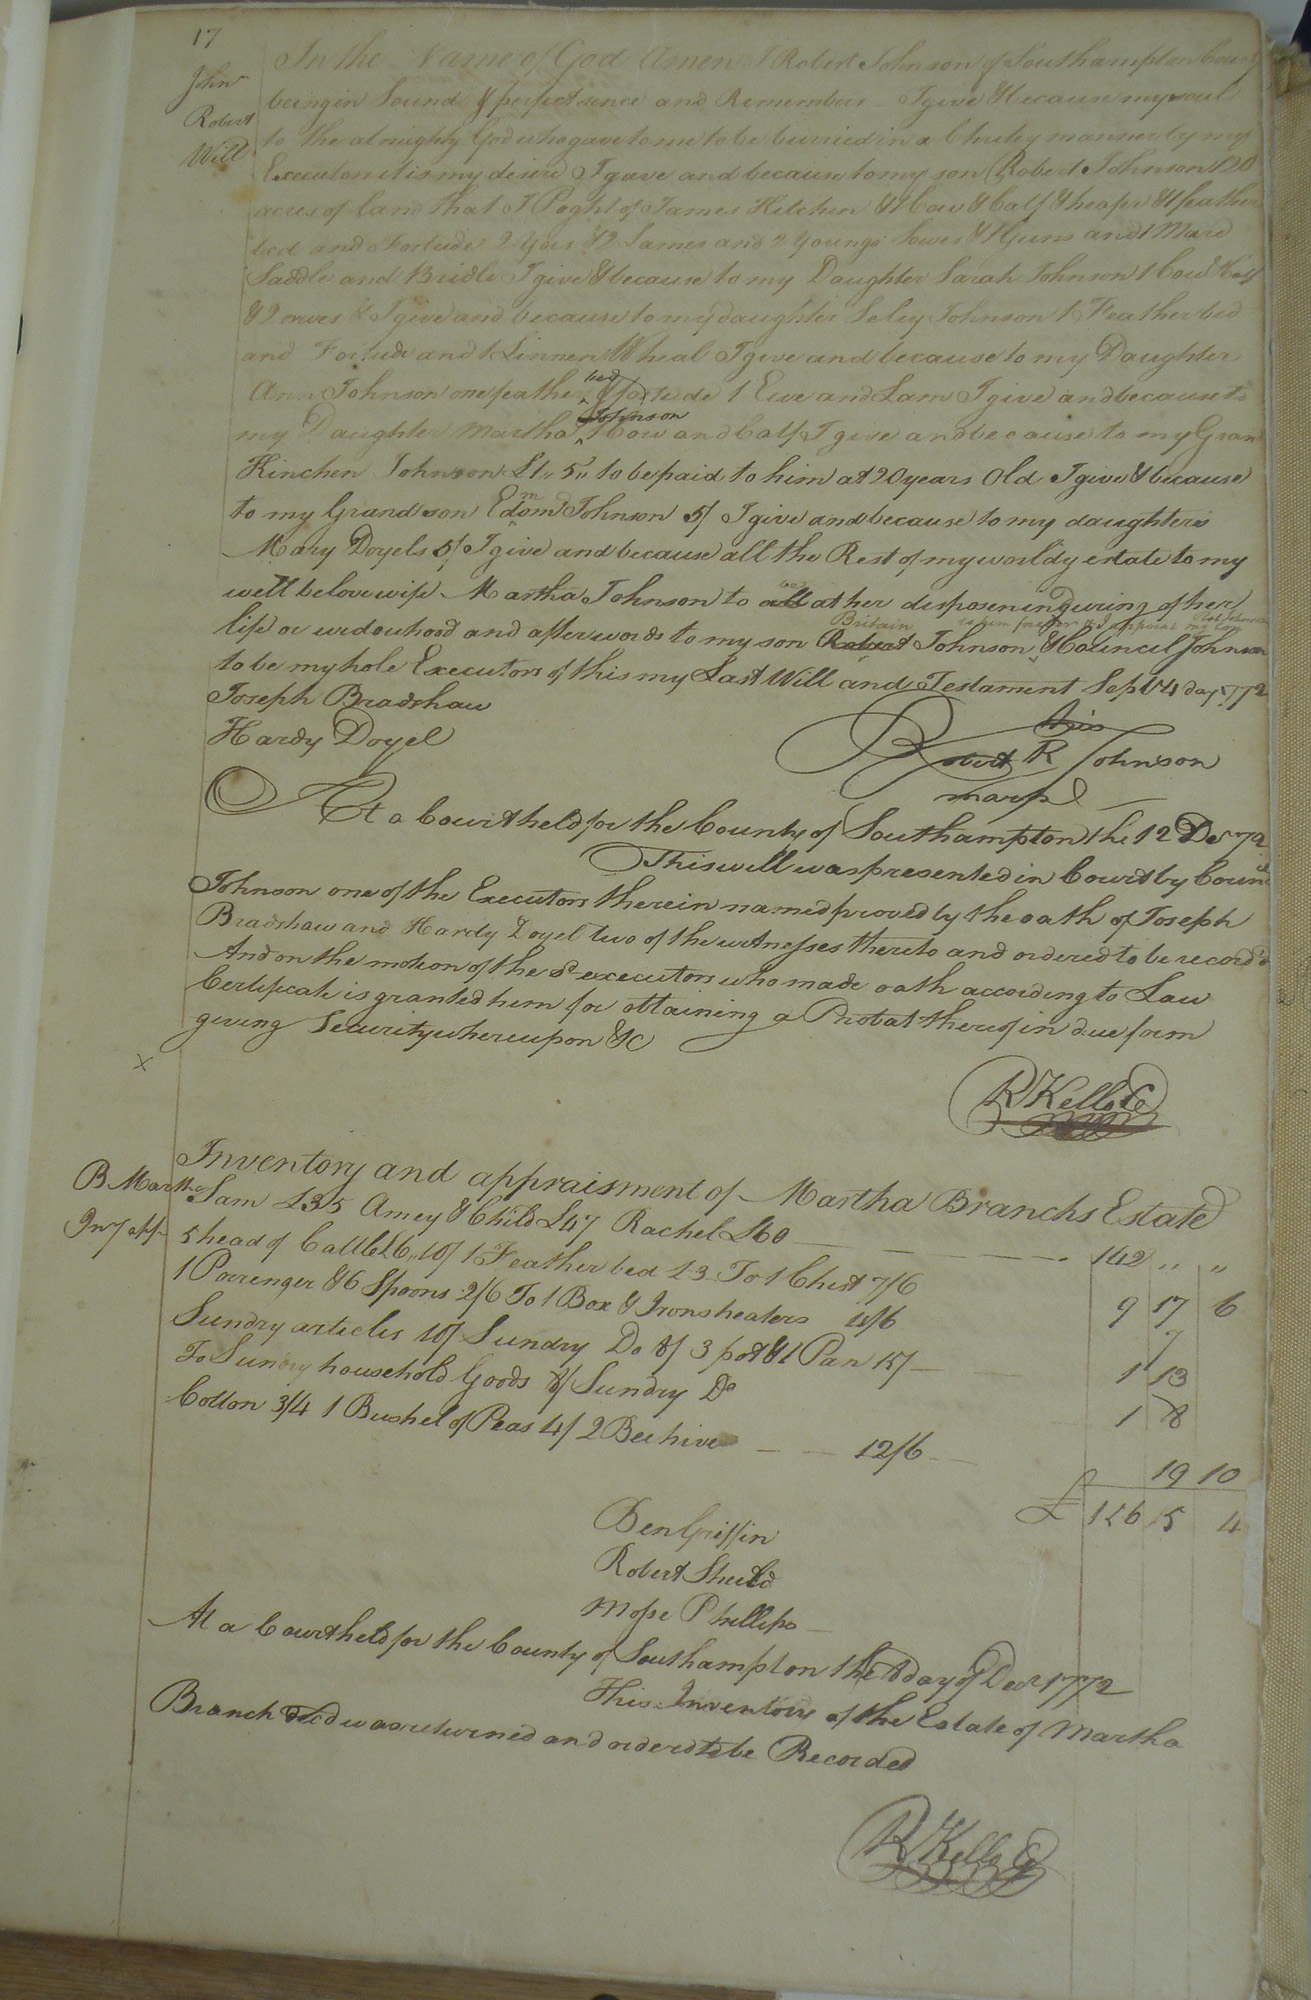 17
John
Robert
Will
In the Name of God Amen I Robert Johnson of Southampton County
being in Sound & perfect sence and Remembers I give & because my soul
to the almighty God who gave to me to be burried in a manner by my
Executors it is my desire I gave and because to my son Robert Johnson 120
acres of land that I Boght of James Kitchen & 1 Cow & Calf & heafer & 1 feather
bed and Fortude 2 Yoes & 2 Lames and 2 Youngs Sowes & 1 Guns and 1 Mare
Saddle and Bridle I give & because to my Daughter Sarah Johnson 1 Cow & Calf
& 2 & I give and because to my daughter Seley Johnson 1 Feather bed
and Fortude and 1 Linnen Wheal I give and because to my Daughter
Ann Johnson one feather bed & fortude 1 Ewe and Lam I give and because to
my Daughter Martha Johnson 1 Cow and Calf I give and because to my Gran
Kinchen Johnson £1,, 5,, to be paid to him at 20 years Old I give & because
to my Grand son Edmond Johnson 5/ I give and because to my daughters
Mary Doyels 5/ I give and because all the Rest of my worldy estate to my
well belove wife Martha Johnson to bee at her disposen in Dwring of her
Britain to him forever my son
life or widowhood and afterwords to my son Robert Johnson & Council Johnson
to be my hole Executors of this my Last Will and Testament Sept 14 day 1772
Joseph Bradshaw
Hardy Doyel
his
Robert R Johnson
mark
At a Court held for the County of Southampton the 12 Dec 72
This will was presented in Court by Council
Johnson one of the Executors therein named proved by the oath of Joseph
Bradshaw and Hardy Doyel two of the witnesses thereto and ordered to be record'd
And on the motion of the sd executors who made oath according to Law
Certificate is granted him for obtaining a Probat thereof in due form
giving Security whereupon &c
x
R Kello Cc
Inventory and appraisment of Martha Branchs Estate
B Martha
Inv app
Sam £35 Amey & Child £47 Rachel £60 142 ,, ,,
5 head of Cattle £6,, 10/ 1 Feather bed £3 To 1 Chest 7/6 9 17 6
1 Porrenger & 6 Spoons 2/6 To 1 Box & Irons heaters 4/6 7
Sundry articles 10/ Sundry Do 8/ 3 pots & 1 Pan 15/ 1 13
To Sundry household Goods 8/ Sundry Do 1 8
Cotton 3/4 1 Bushel of Peas 4/ 2 Beehive 12/6 19 10
£ 156 5 4
Ben Griffin
Robert Sheild
Mosse Phillips
At a Court held for the County of Southampton the day of Decr 1772
This Inventory of the Estate of Martha
Branch decd was returned and ordered to be Recorded
R Kello Cc